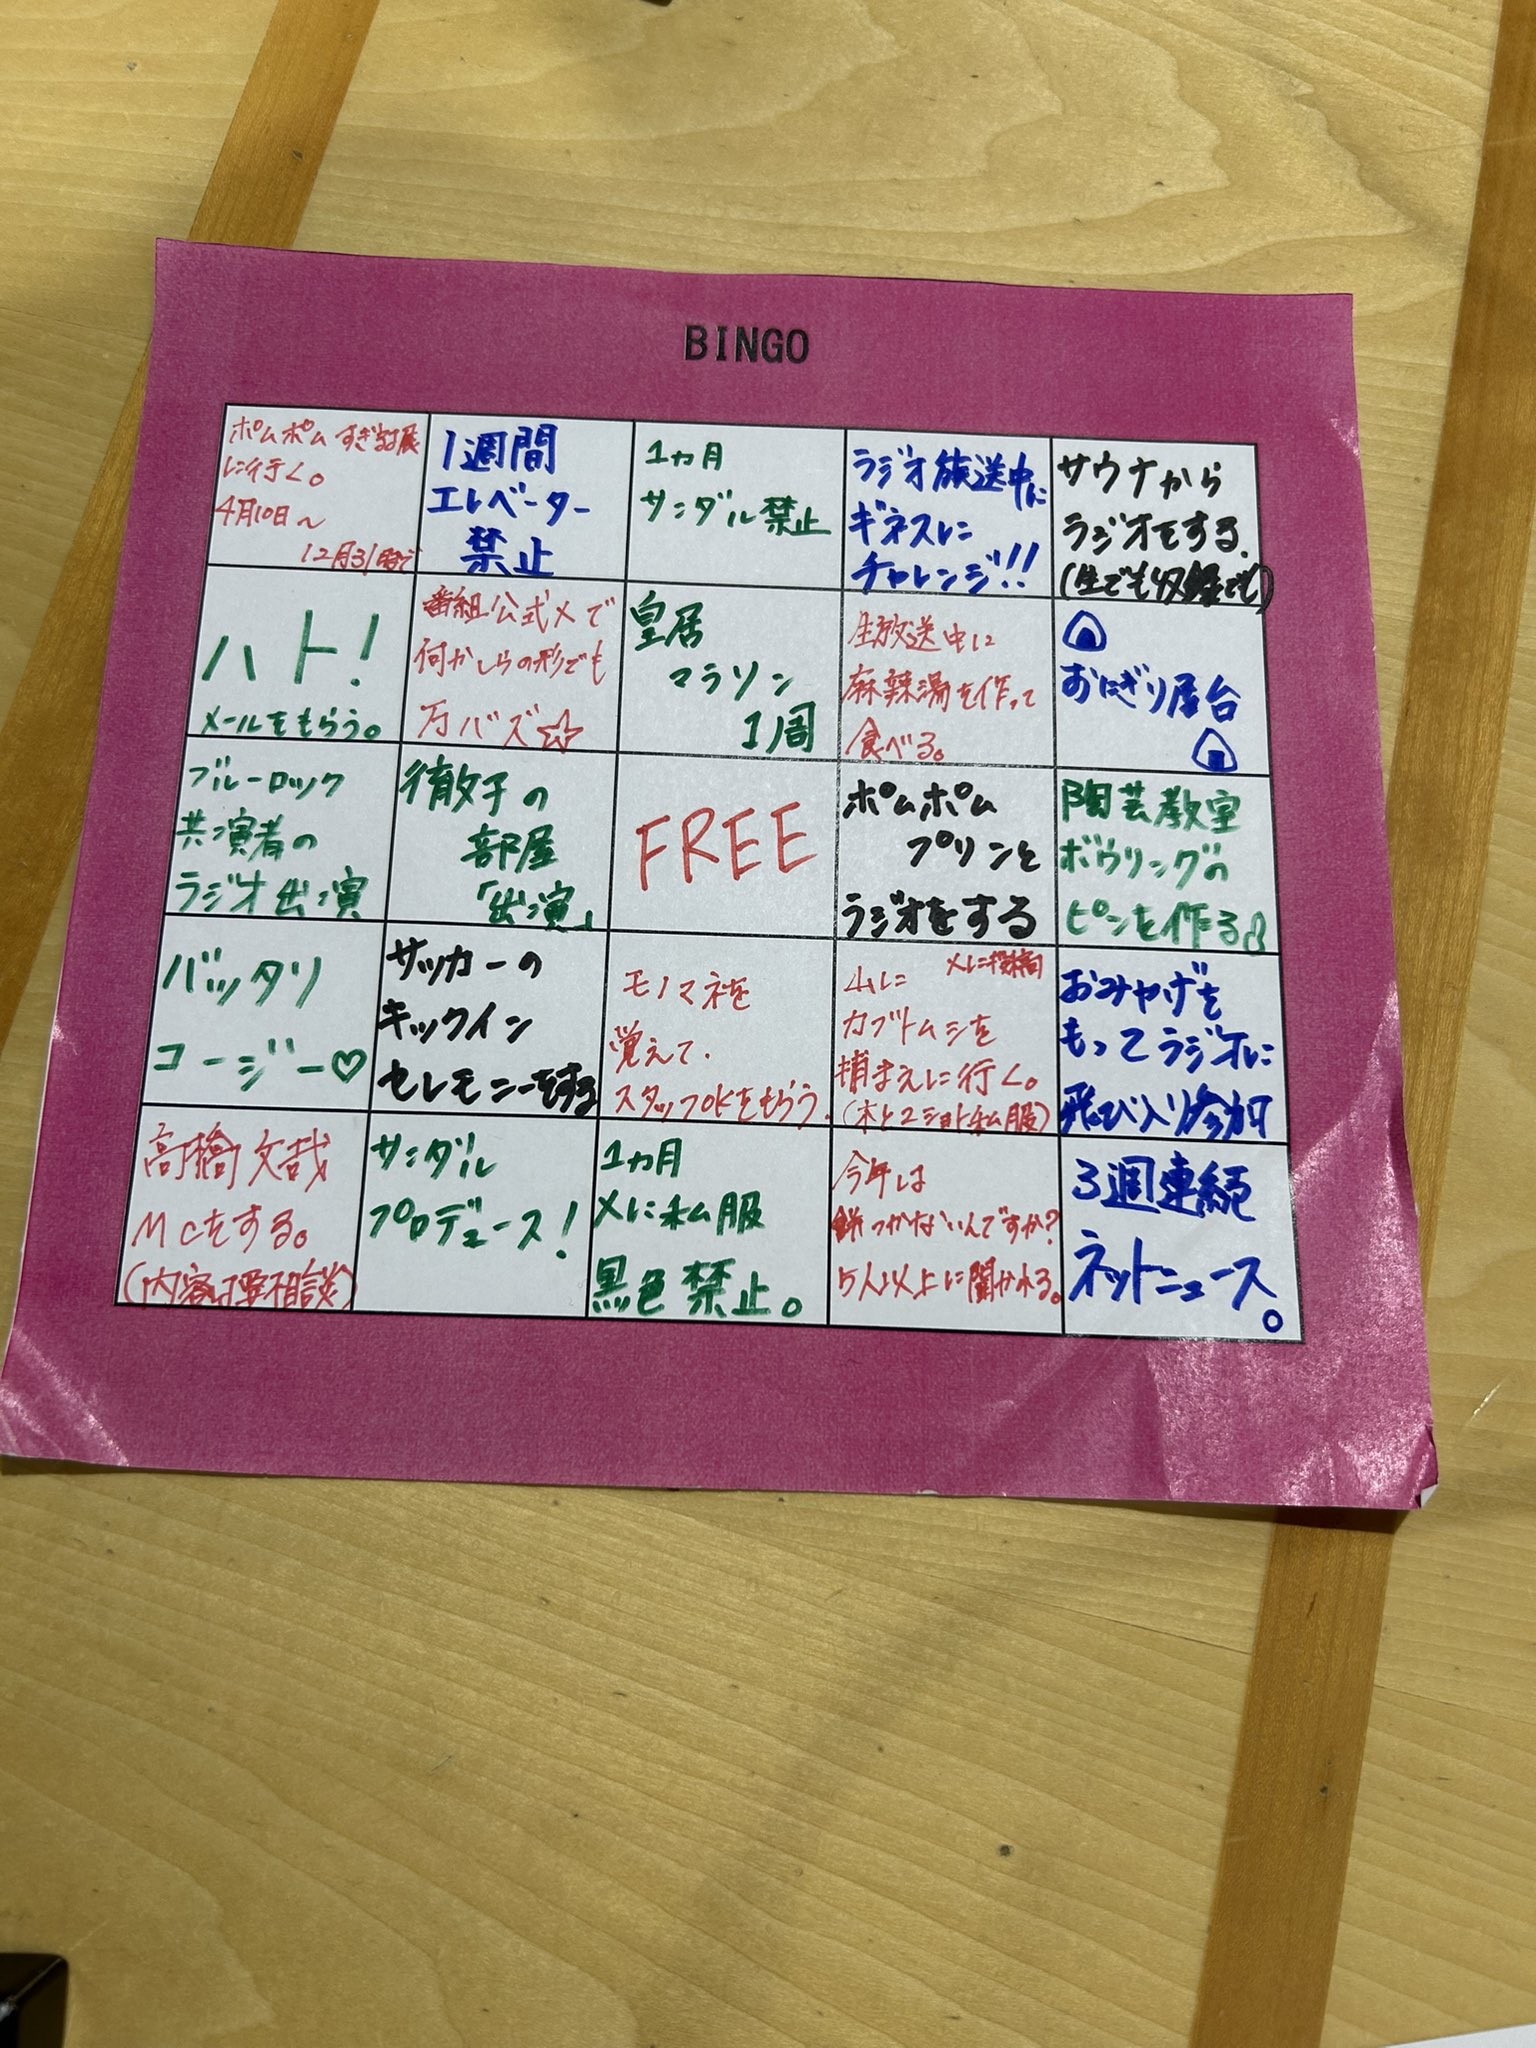 BINGO
ポムポムすぎる展
に行く。
4月10日～
12月31日まで
1週間
エレベーター
禁止
1カ月
サンダル禁止
ラジオ放送中に
ギネスに
チャレンジ!!
サウナから
ラジオをする.
(生でも収録でも)
ハト!
メールをもらう。
番組公式Xで
何かしらの形でも
万バズ☆
皇居
マラソン
1周
生放送中に
麻辣湯を作って
食べる。
おにぎり屋台
ブルーロック
共演者の
ラジオ出演
徹子の
部屋
「出演」
FREE
ポムポム
プリンと
ラジオをする
陶芸教室
ボウリングの
ピンを作る
バッタリ
コージー♡
サッカーの
キックイン
セレモニーをする
モノマネを
覚えて.
スタッフOKをもらう.
Xに投稿
山に
カブトムシを
捕まえに行く。
(木と2ショト私服)
おみやげを
もってラジオに
飛び入り参加
高橋文哉
MCをする。
(内容は要相談)
サンダル
プロデュース!
1カ月
Xに私服
黒色禁止。
今年は
餅つかないんですか?
5人以上に聞かれる。
3週連続
ネットニュース。